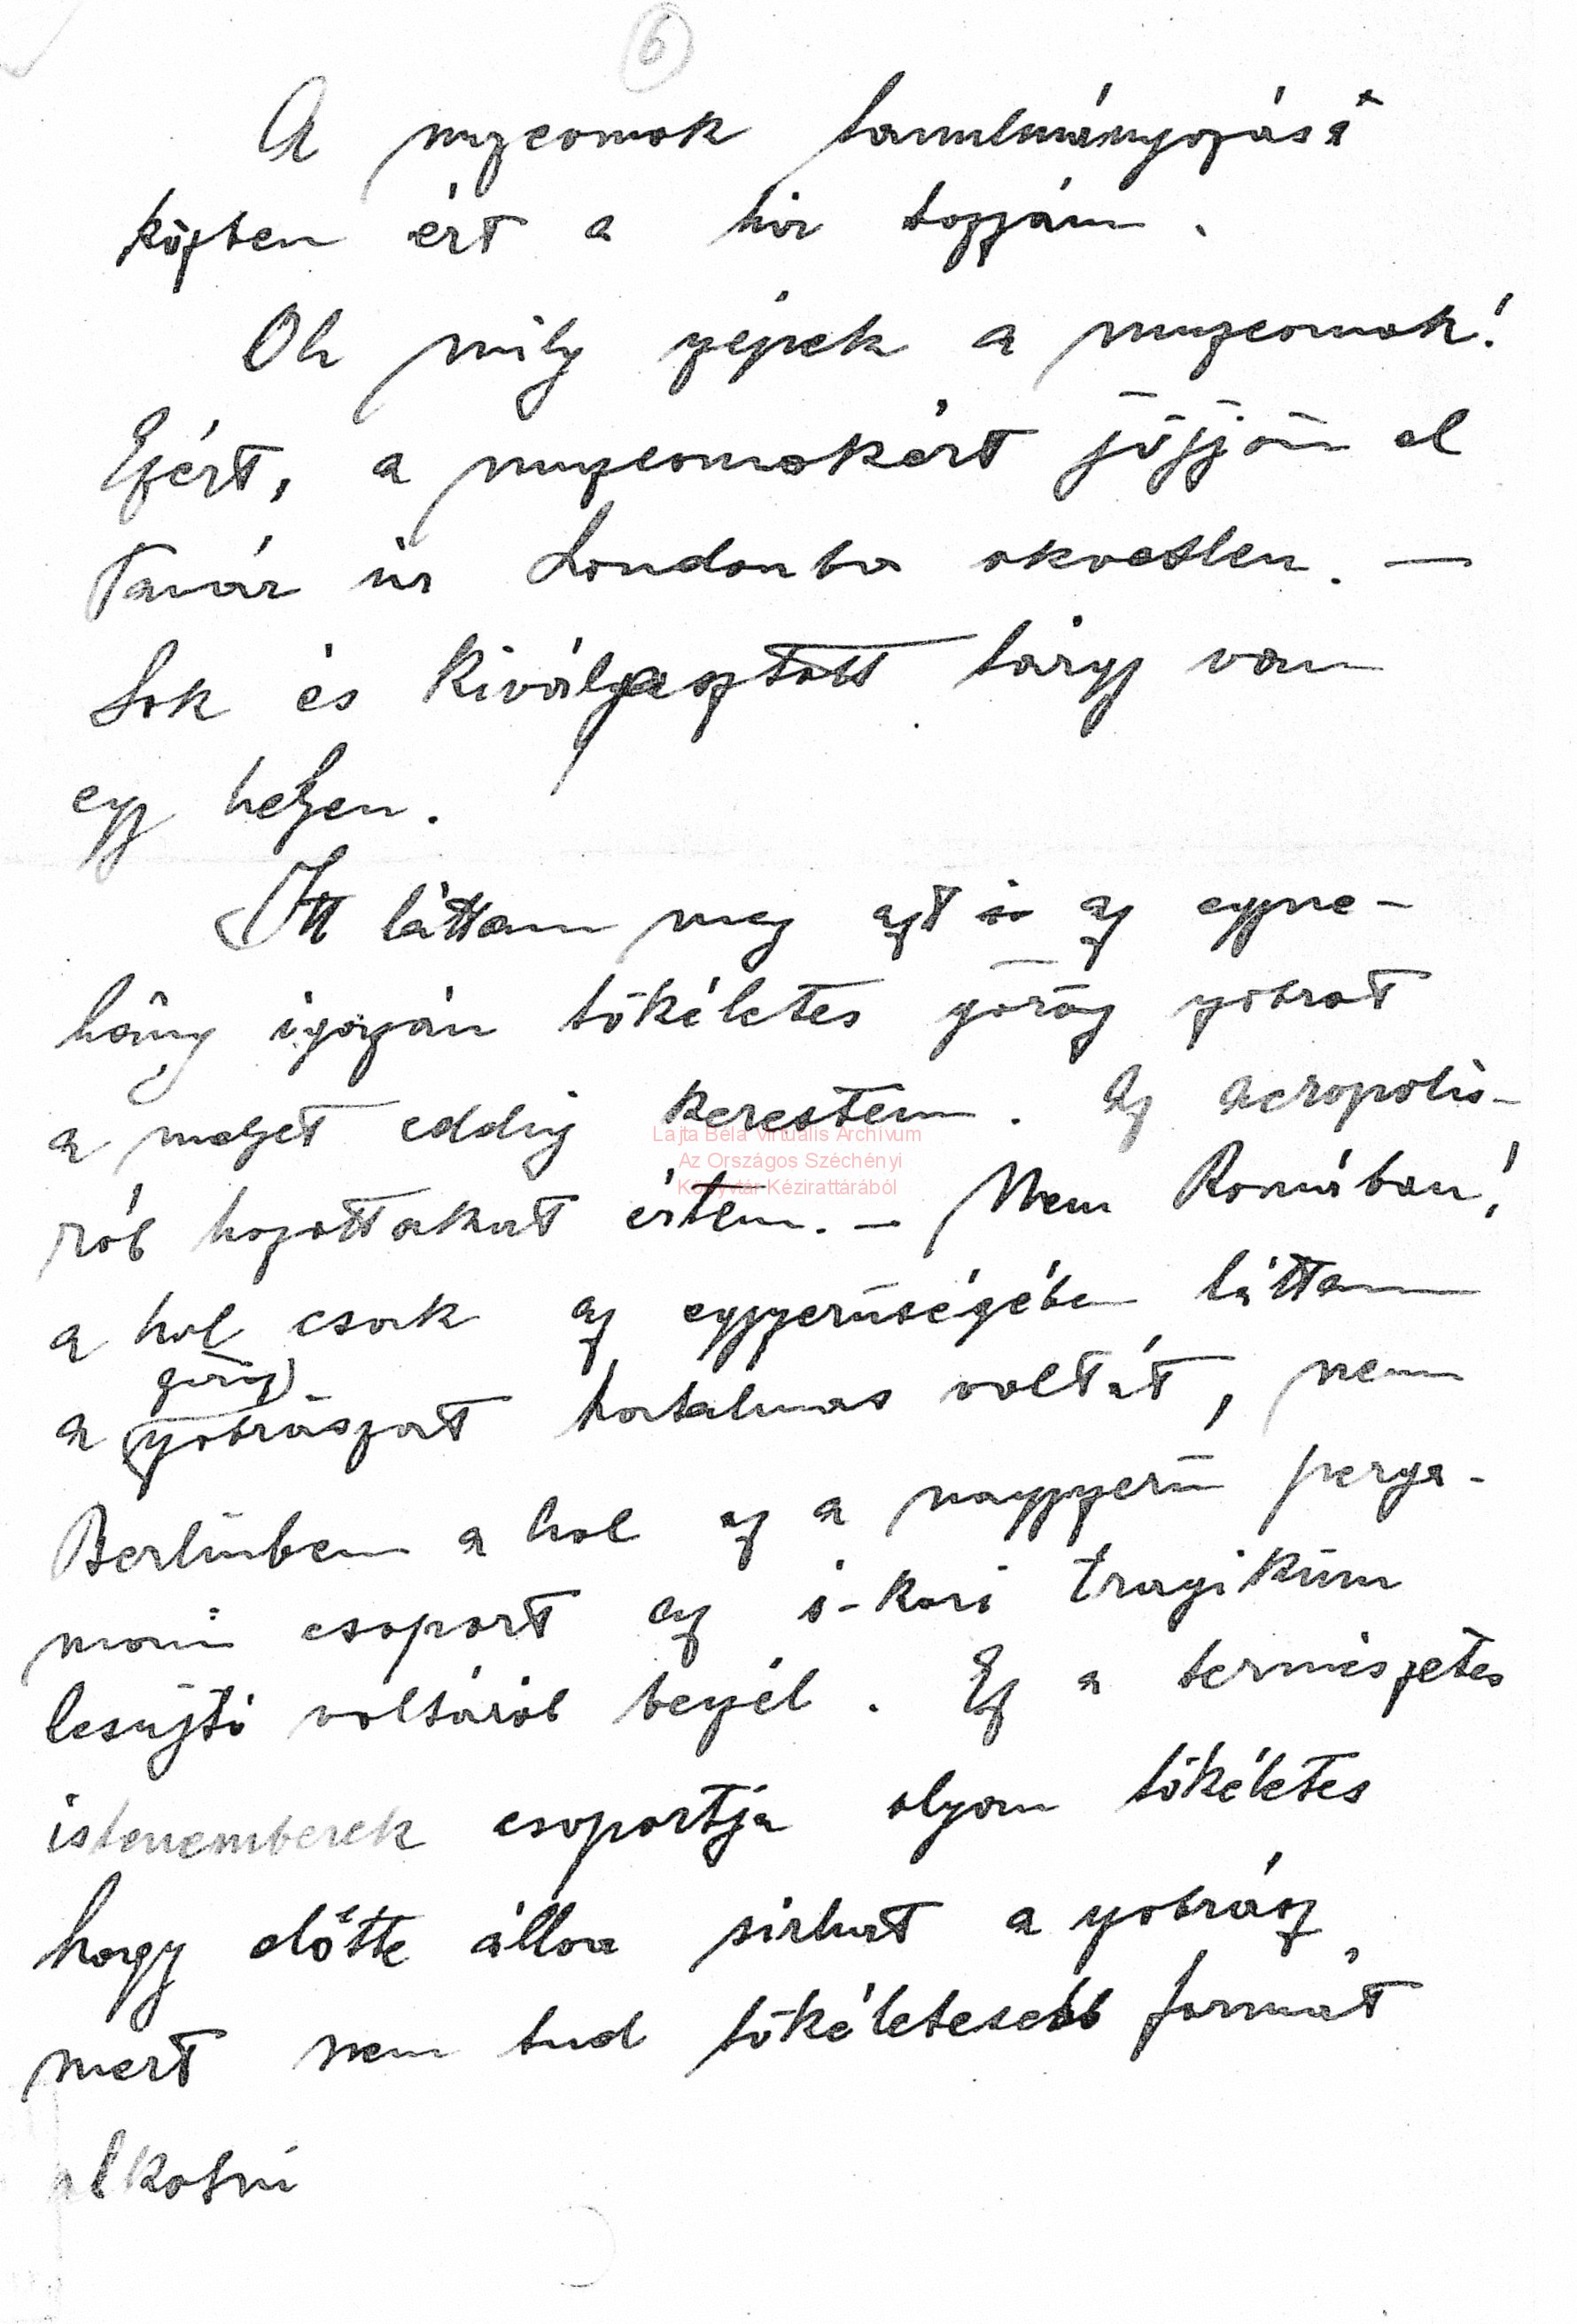 6
A muzeomok tanulmányozása
közben ért a hír hozzám.
Oh mily szépek a muzeomok!
Ezért, a muzeomokért jőjjön el
Tanár úr Londonba okvetlen. —
Sok és kiválasztott tárgy van
egy helyen.
Itt láttam meg azt is az egyne-
hány igazán tökéletes görög szobrot
a melyet eddig kerestem. Az Acropolis-
ról hozottakat értem. — Nem Romában!
a hol csak az egyszerűségében láttam
görög
a szobrászat hatalmas voltát, nem
Berlinben a hol az a nagyszerű perga-
moni csoport az ó-kori tragikum
lesújtó voltáról beszél. Ez a természetes
istenemberek csoportja olyan tökéletes
hogy előtte állva sírhat a szobrász,
mert nem tud tökéletesebb formát
alkotni
Lajta Béla Virtuális Archívum
Az Országos Széchényi
Könyvtár Kézirattárából